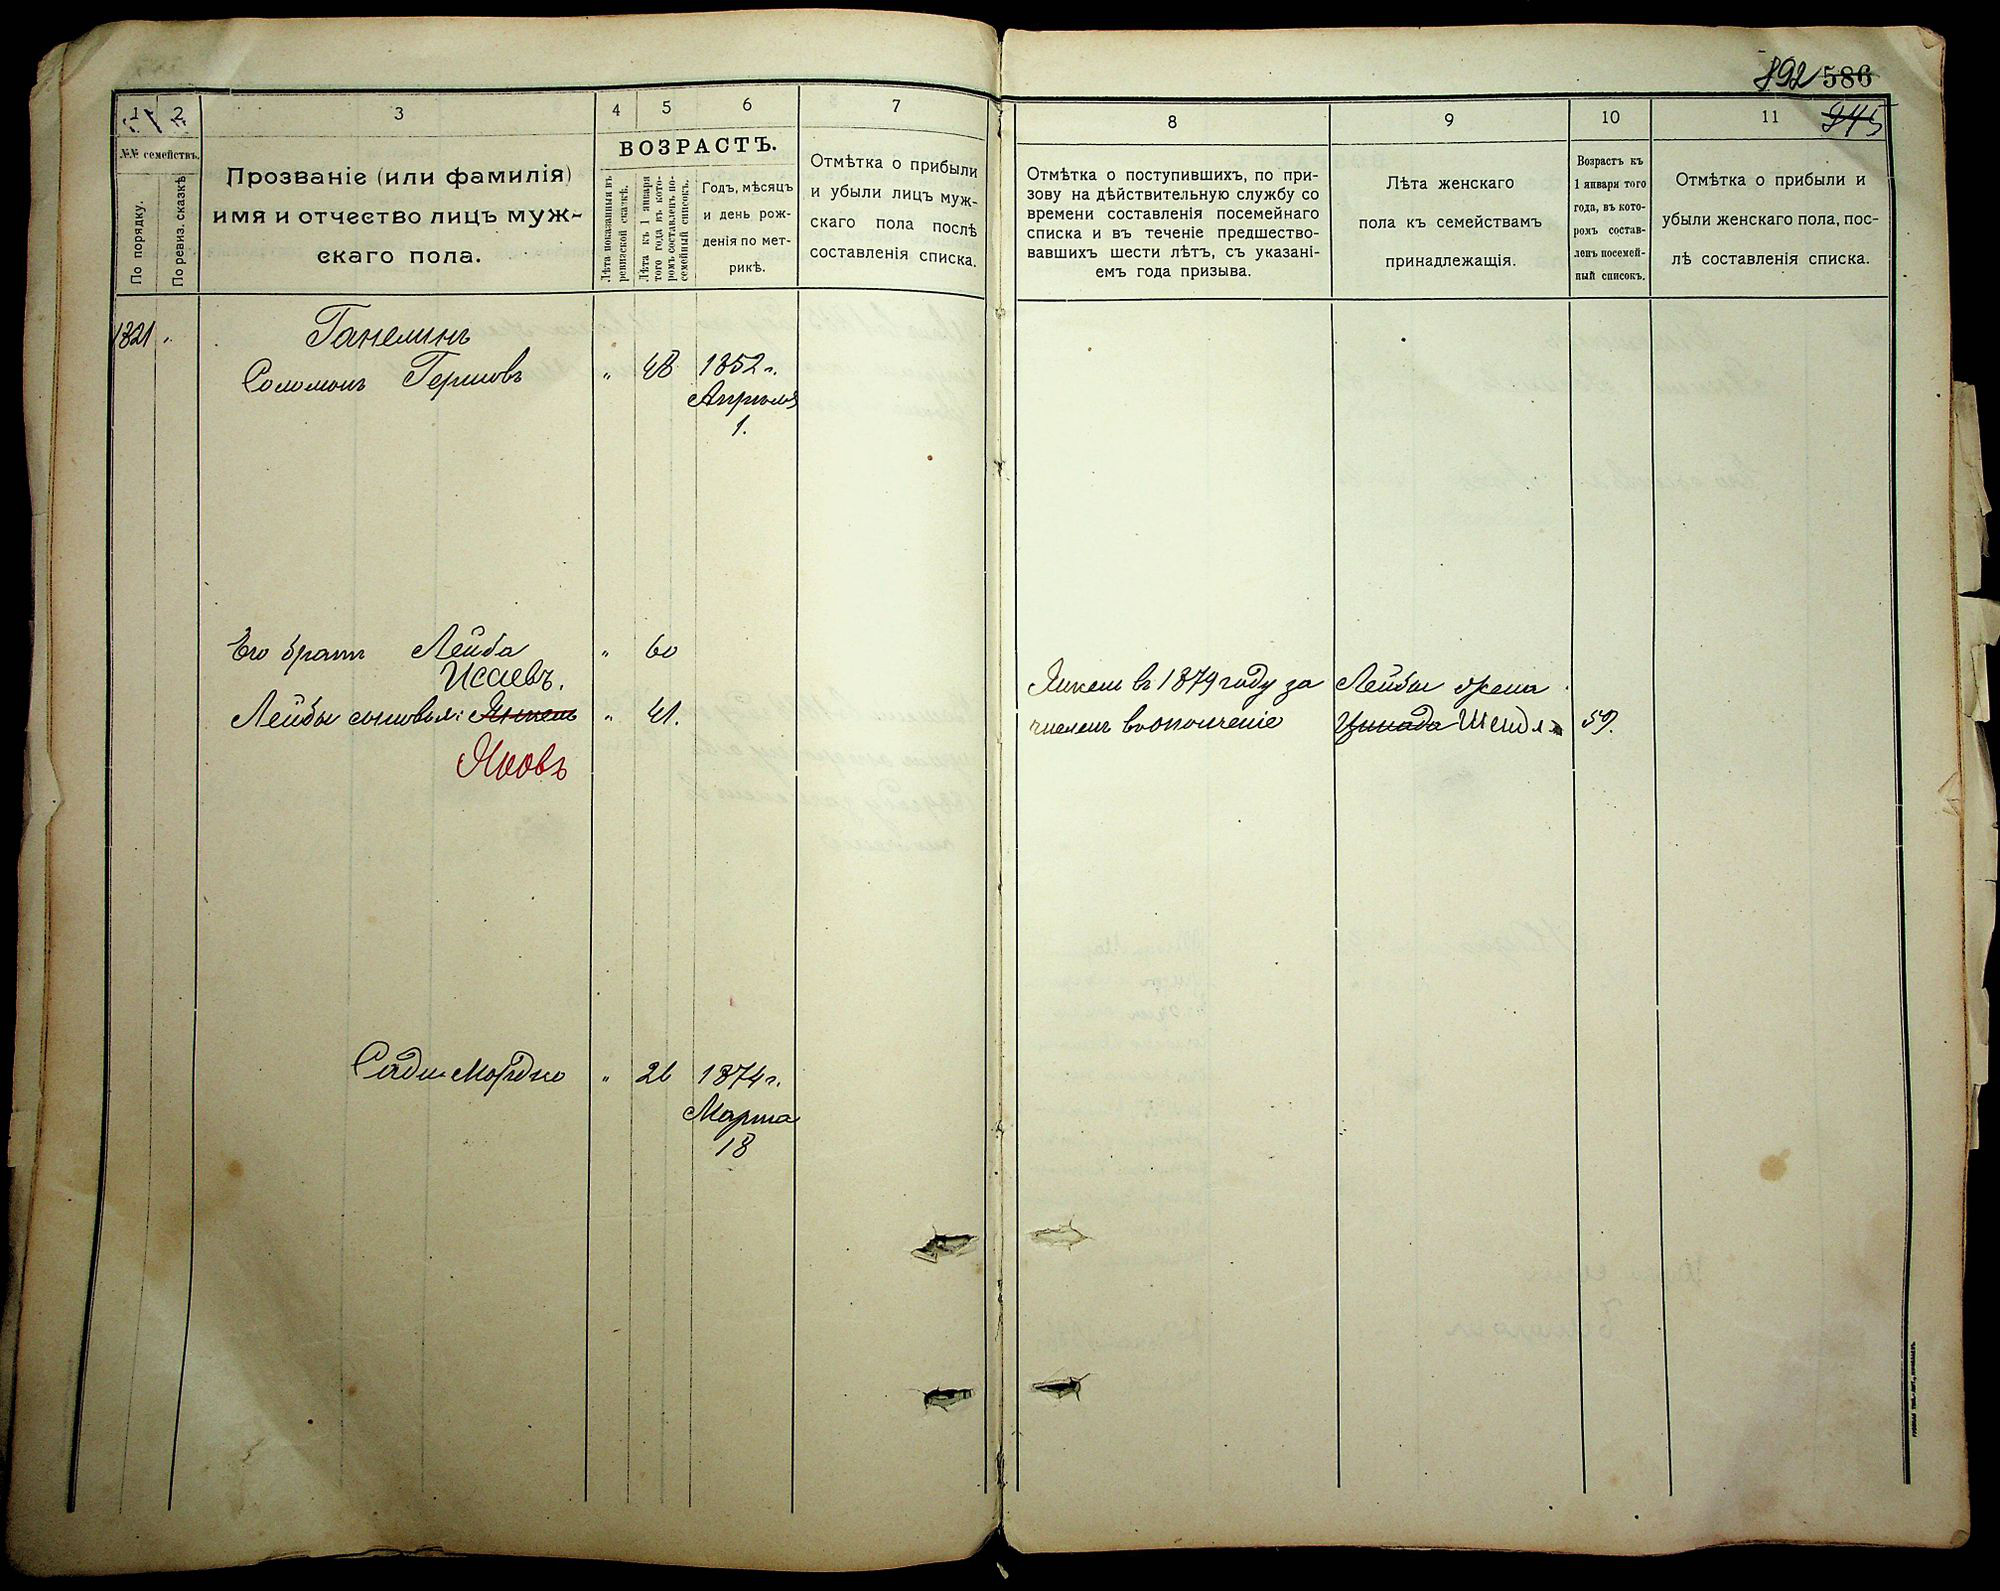 892 586
945
1 2 3 4 5 6 7
№№ семействъ.
По порядку.
По ревиз. сказкѣ
Прозваніе (или фамилія)
имя и отчество лицъ муж-
скаго пола.
ВОЗРАСТЪ.
Лѣта показанныя въ
ревизской сказкѣ.
Лѣта къ 1 января
того года въ кото-
ромъ составленъ по-
семейный списокъ.
Годъ, мѣсяцъ
и день рож-
денія по мет-
рикѣ.
Отмѣтка о прибыли
и убыли лицъ муж-
скаго пола послѣ
составленія списка.
8 9 10 11
Отмѣтка о поступившихъ, по при-
зову на дѣйствительную службу со
времени составленія посемейнаго
списка и въ теченіе предшество-
вавшихъ шести лѣтъ, съ указані-
емъ года призыва.
Лѣта женскаго
пола къ семействамъ
принадлежащія.
Возрастъ къ
1 января того
года, въ кото-
ромъ состав-
ленъ посемей-
ный списокъ.
Отмѣтка о прибыли и
убыли женскаго пола, пос-
лѣ составленія списка.
1321 "
Ганелинъ
Соломонъ Гершовъ " 48 1852 г.
Апрѣля
1.
Его братъ Лейба " 60
Исаевъ.
Лейбы сыновья: Янкель " 41.
Яковъ
Янкель въ 1879 году за
численъ въ ополченіе
Лейбы жена
Шендля 59.
Садик Мордко " 26 1874 г.
Марта
18